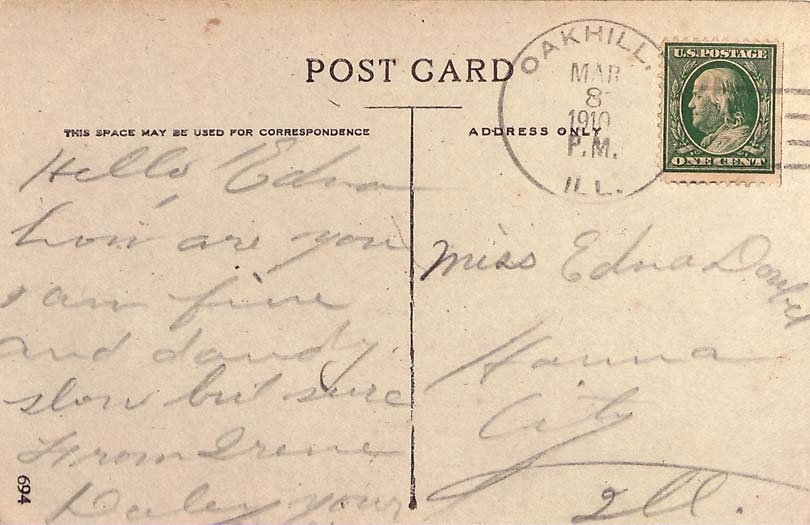 POST CARD
THIS SPACE MAY BE USED FOR CORRESPONDENCE
ADDRESS ONLY
OAKHILL,
MAR
8
1910
P.M.
ILL.
U.S. POSTAGE
ONE CENT
Hello, Edna
how are you
I am fine
and dandy.
slow but sure
From Irene
Daley your
Miss Edna
Hanna
City
Ill.
694